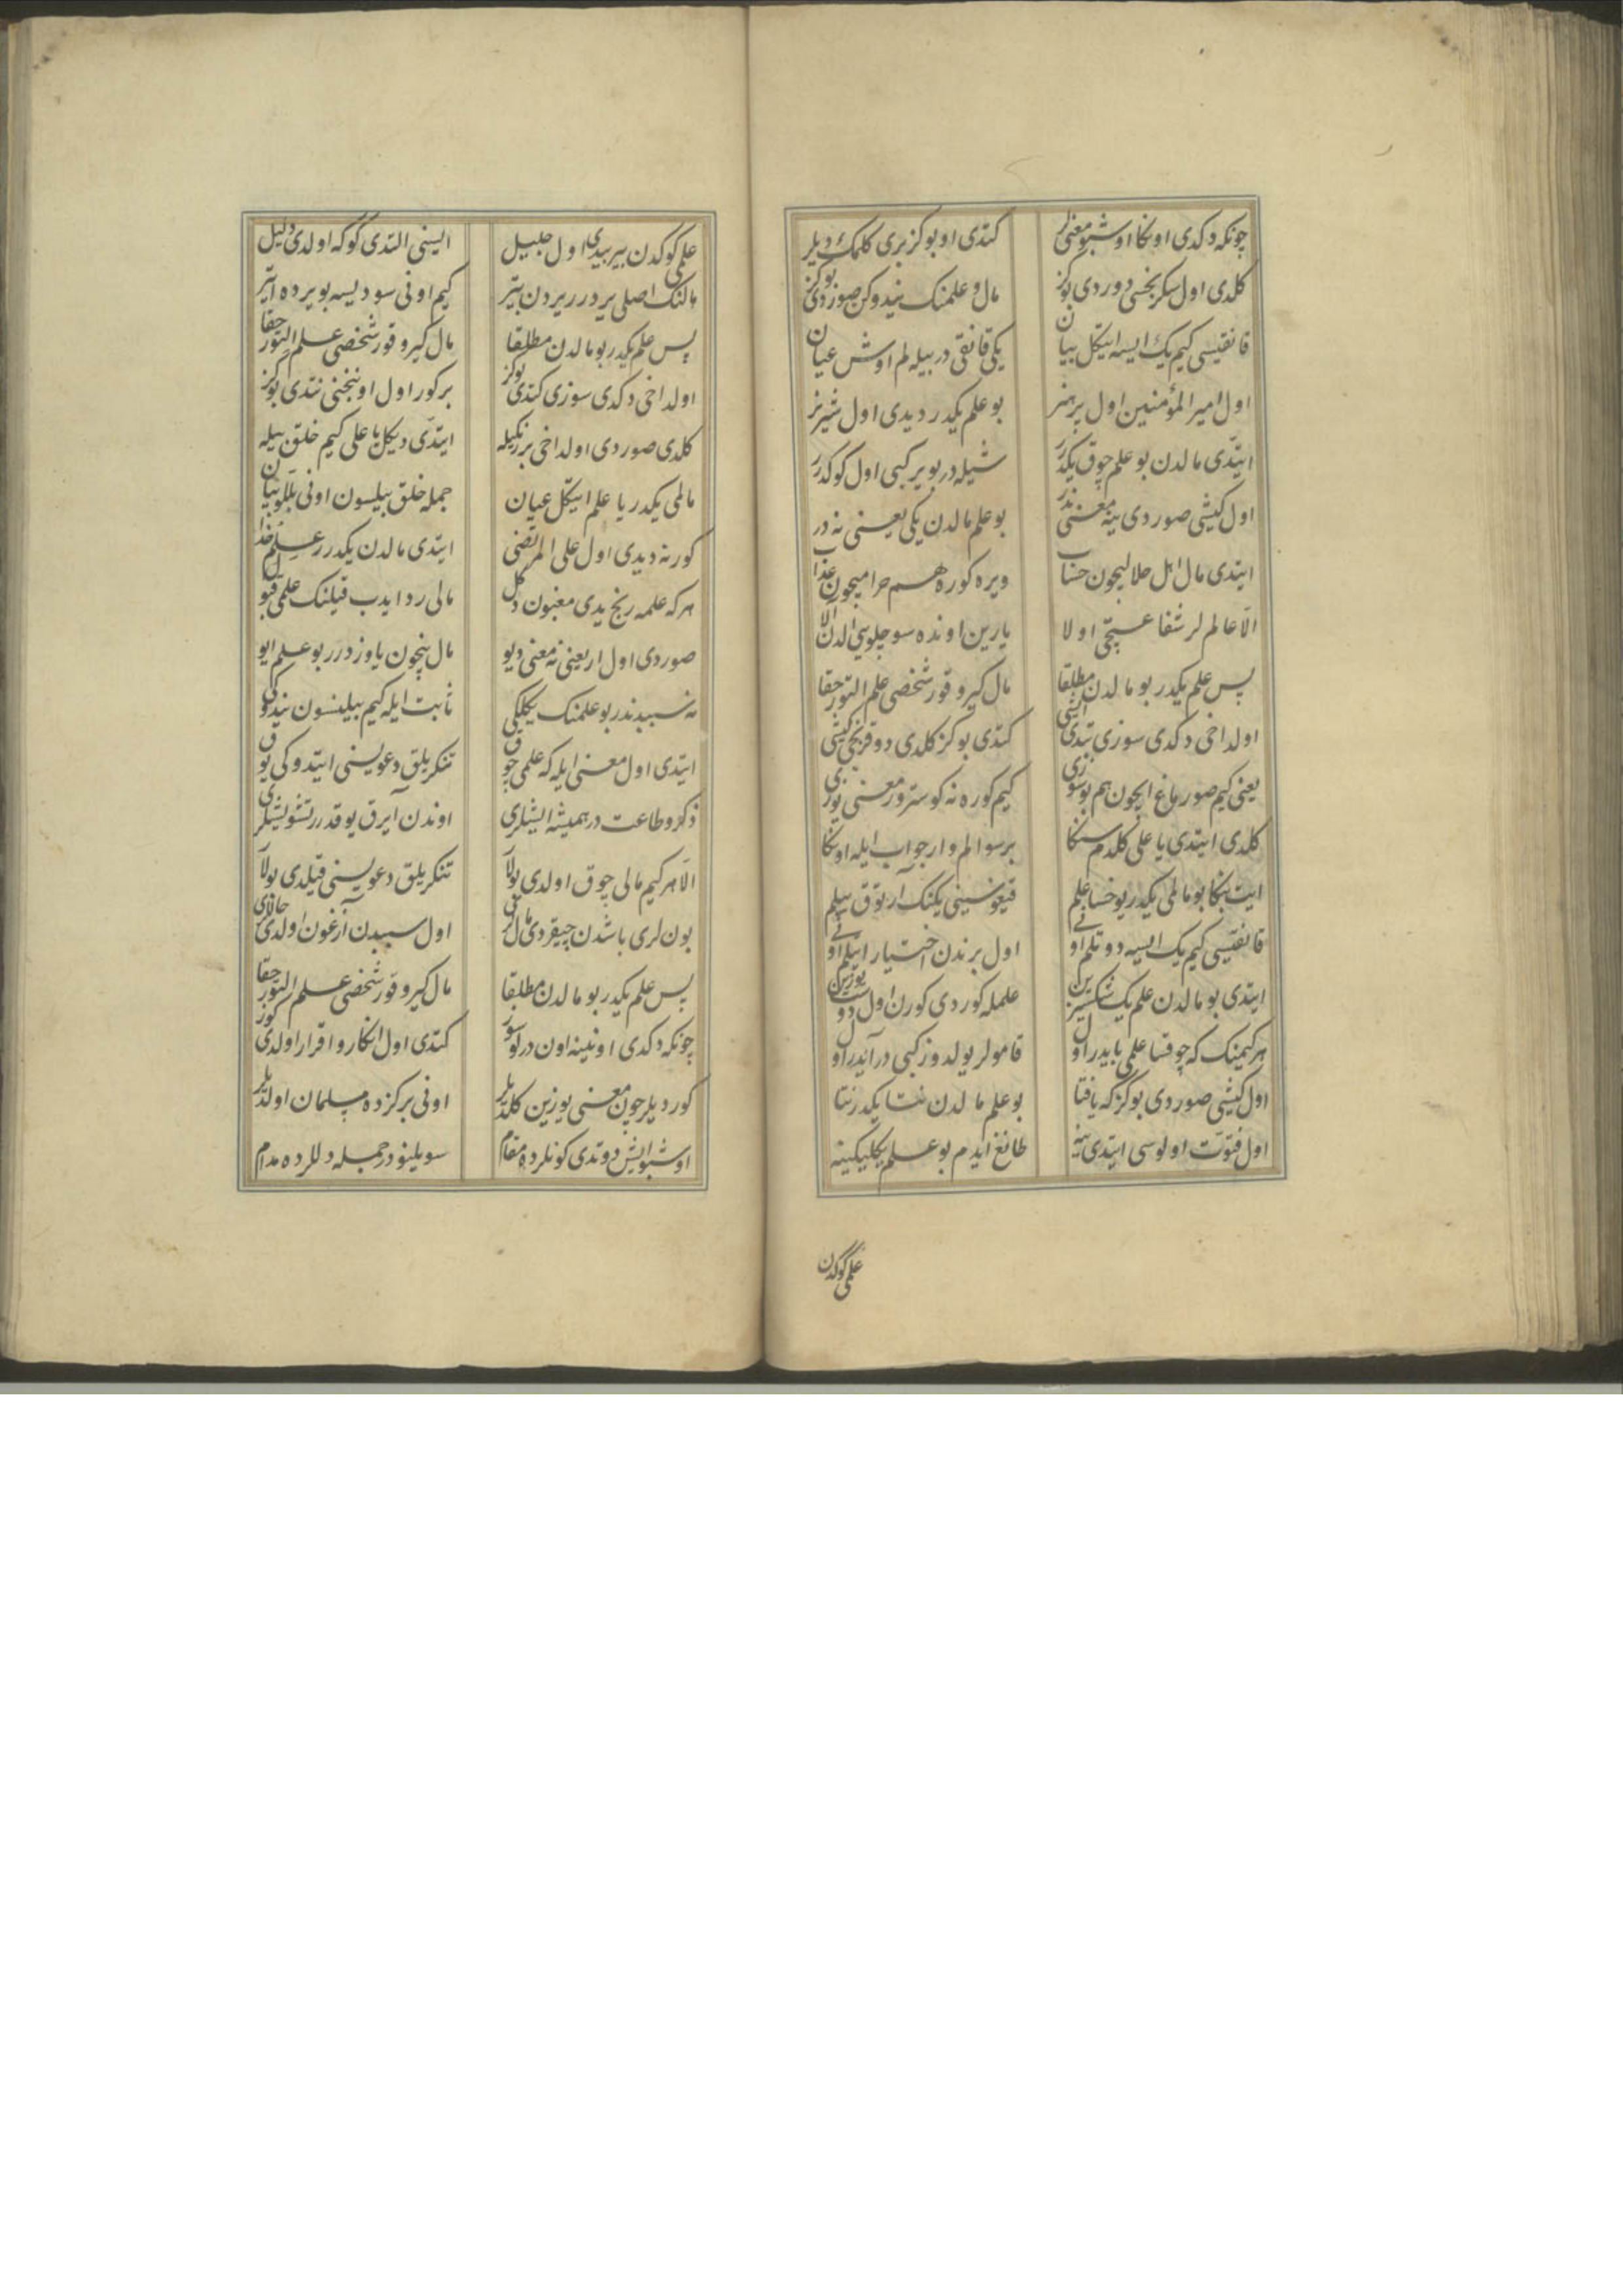 چونکه دکدی اونکا اوشبو معنی لر کتدی او بو کز بری کلمک دیلر
کلدی اول سکزنجی دوردی بو کز مال و علمنک نیدوکن صوردی بو کز
قانقیسی کیم یک ایسه ایتکل بیان یکی قانقی در بیله لم اوش عیان
اول امیر المؤمنین اول پر هنر بو علم یکدر دیدی اول شیر نر
ایتدی مالدن بو علم چوق یکدر شیله در بو یر کبی اول کوکدر
اول کیشی صوردی ینه معنی ندر بو علم مالدن یکی یعنی نه در
ایتدی مال اهل حلالیچون حساب ویره کوره هم حرامیچون عذاب
الّا عالم لر شفاعتچی اولا یارین اونده سوجلویی الدن آلا
پس علم یکدر بو مالدن مطلقا مال کیرو قور شخصی علم التور حقا
اولداخی دکدی سوزی تیدی ایشی کتدی بو کز کلدی دوقزنجی کیشی
یعنی کیم صورماغ ایچون هم بو سوزی کیم کوره نه کوسترور معنی یوزی
کلدی ایتدی یا علی کلدم سنکا بر سوالم وار جواب ایله اونکا
ایت بنکا بو مالمی یکدر یوخسا علم قیغوسینی یکنک آرتوق ییلم
قانقیسی کیم یک ایسه دوتلم اونی اول برندن اختیار اییلم اونی
ایتدی بو مالدن علم یک شکسیزین علمله کوردی کورن اول دوست یوزین
هر کیمنک که چوقسا علمی بایدر اول قامولر یولدوز کبی در آیدر اول
اول کیشی صوردی بو کز که یافتا بو علم مالدن نتا یکدر نتا
اول فتوت اولوسی ایتدی ینه طانغ ایدم بو علم یکلیکینه
علمی کوکدن
علمی کوکدن بیربیدی اول جلیل ایسنی التدی کوکه اولدی دلیل
مالنک اصلی یردرر یردن بیتر کیم اونی سودیسه بو یرده ایتر
پس علم یکدر بو مالدن مطلقا مال کیرو قور شخصی علم التور حقا
اولداخی دکدی سوزی کتدی بو کز بر کور اول اوننجنی نتدی بو کز
کلدی صوردی اولداخی بر رنکیله ایتدی دیکل یا علی کیم خلق بیله
مالمی یکدر یا علم ایتکل عیان جمله خلق بیلسون اونی بللو بیان
کور نه دیدی اول علی المرتضی ایتدی مالدن یکدرر علم خدا
هر که علمه رنج یدی مغبون دکل مالی رد ایدب قیلنک علمی قبول
صوردی اول ار یعنی نه معنی دیو مال نیچون یاوزدرر بو علم ایو
نه سببدندر بو علمنک یکلیکی ثابت ایله کیم بیلنسون نیدوکی
ایتدی اول معنی ایله که علمی چوق تنکریلق دعویسنی ایتدوکی یوق
ذکر و طاعت در همیشه ایشلری اوندن آیرق یوقدرر تشویشلری
الّا هر کیم مالی چوق اولدی بولا تنکریلق دعویسنی قیلدی بولا
بون لری باشدن چیقردی مال لری اول سببدن آزغون اولدی حاللری
پس علم یکدر بو مالدن مطلقا مال کیرو قور شخصی علم التور حقا
چونکه دکدی اونینه اون درلو سوز کتدی اول انکار و اقرار اولدی کوز
کوردیلر چون معنی یوزین کلدیلر اونی بر کزده مسلمان اولدیلر
اوشبو ایش دوتدی کونلرده مقام سویلنودر جمله دللرده مدام